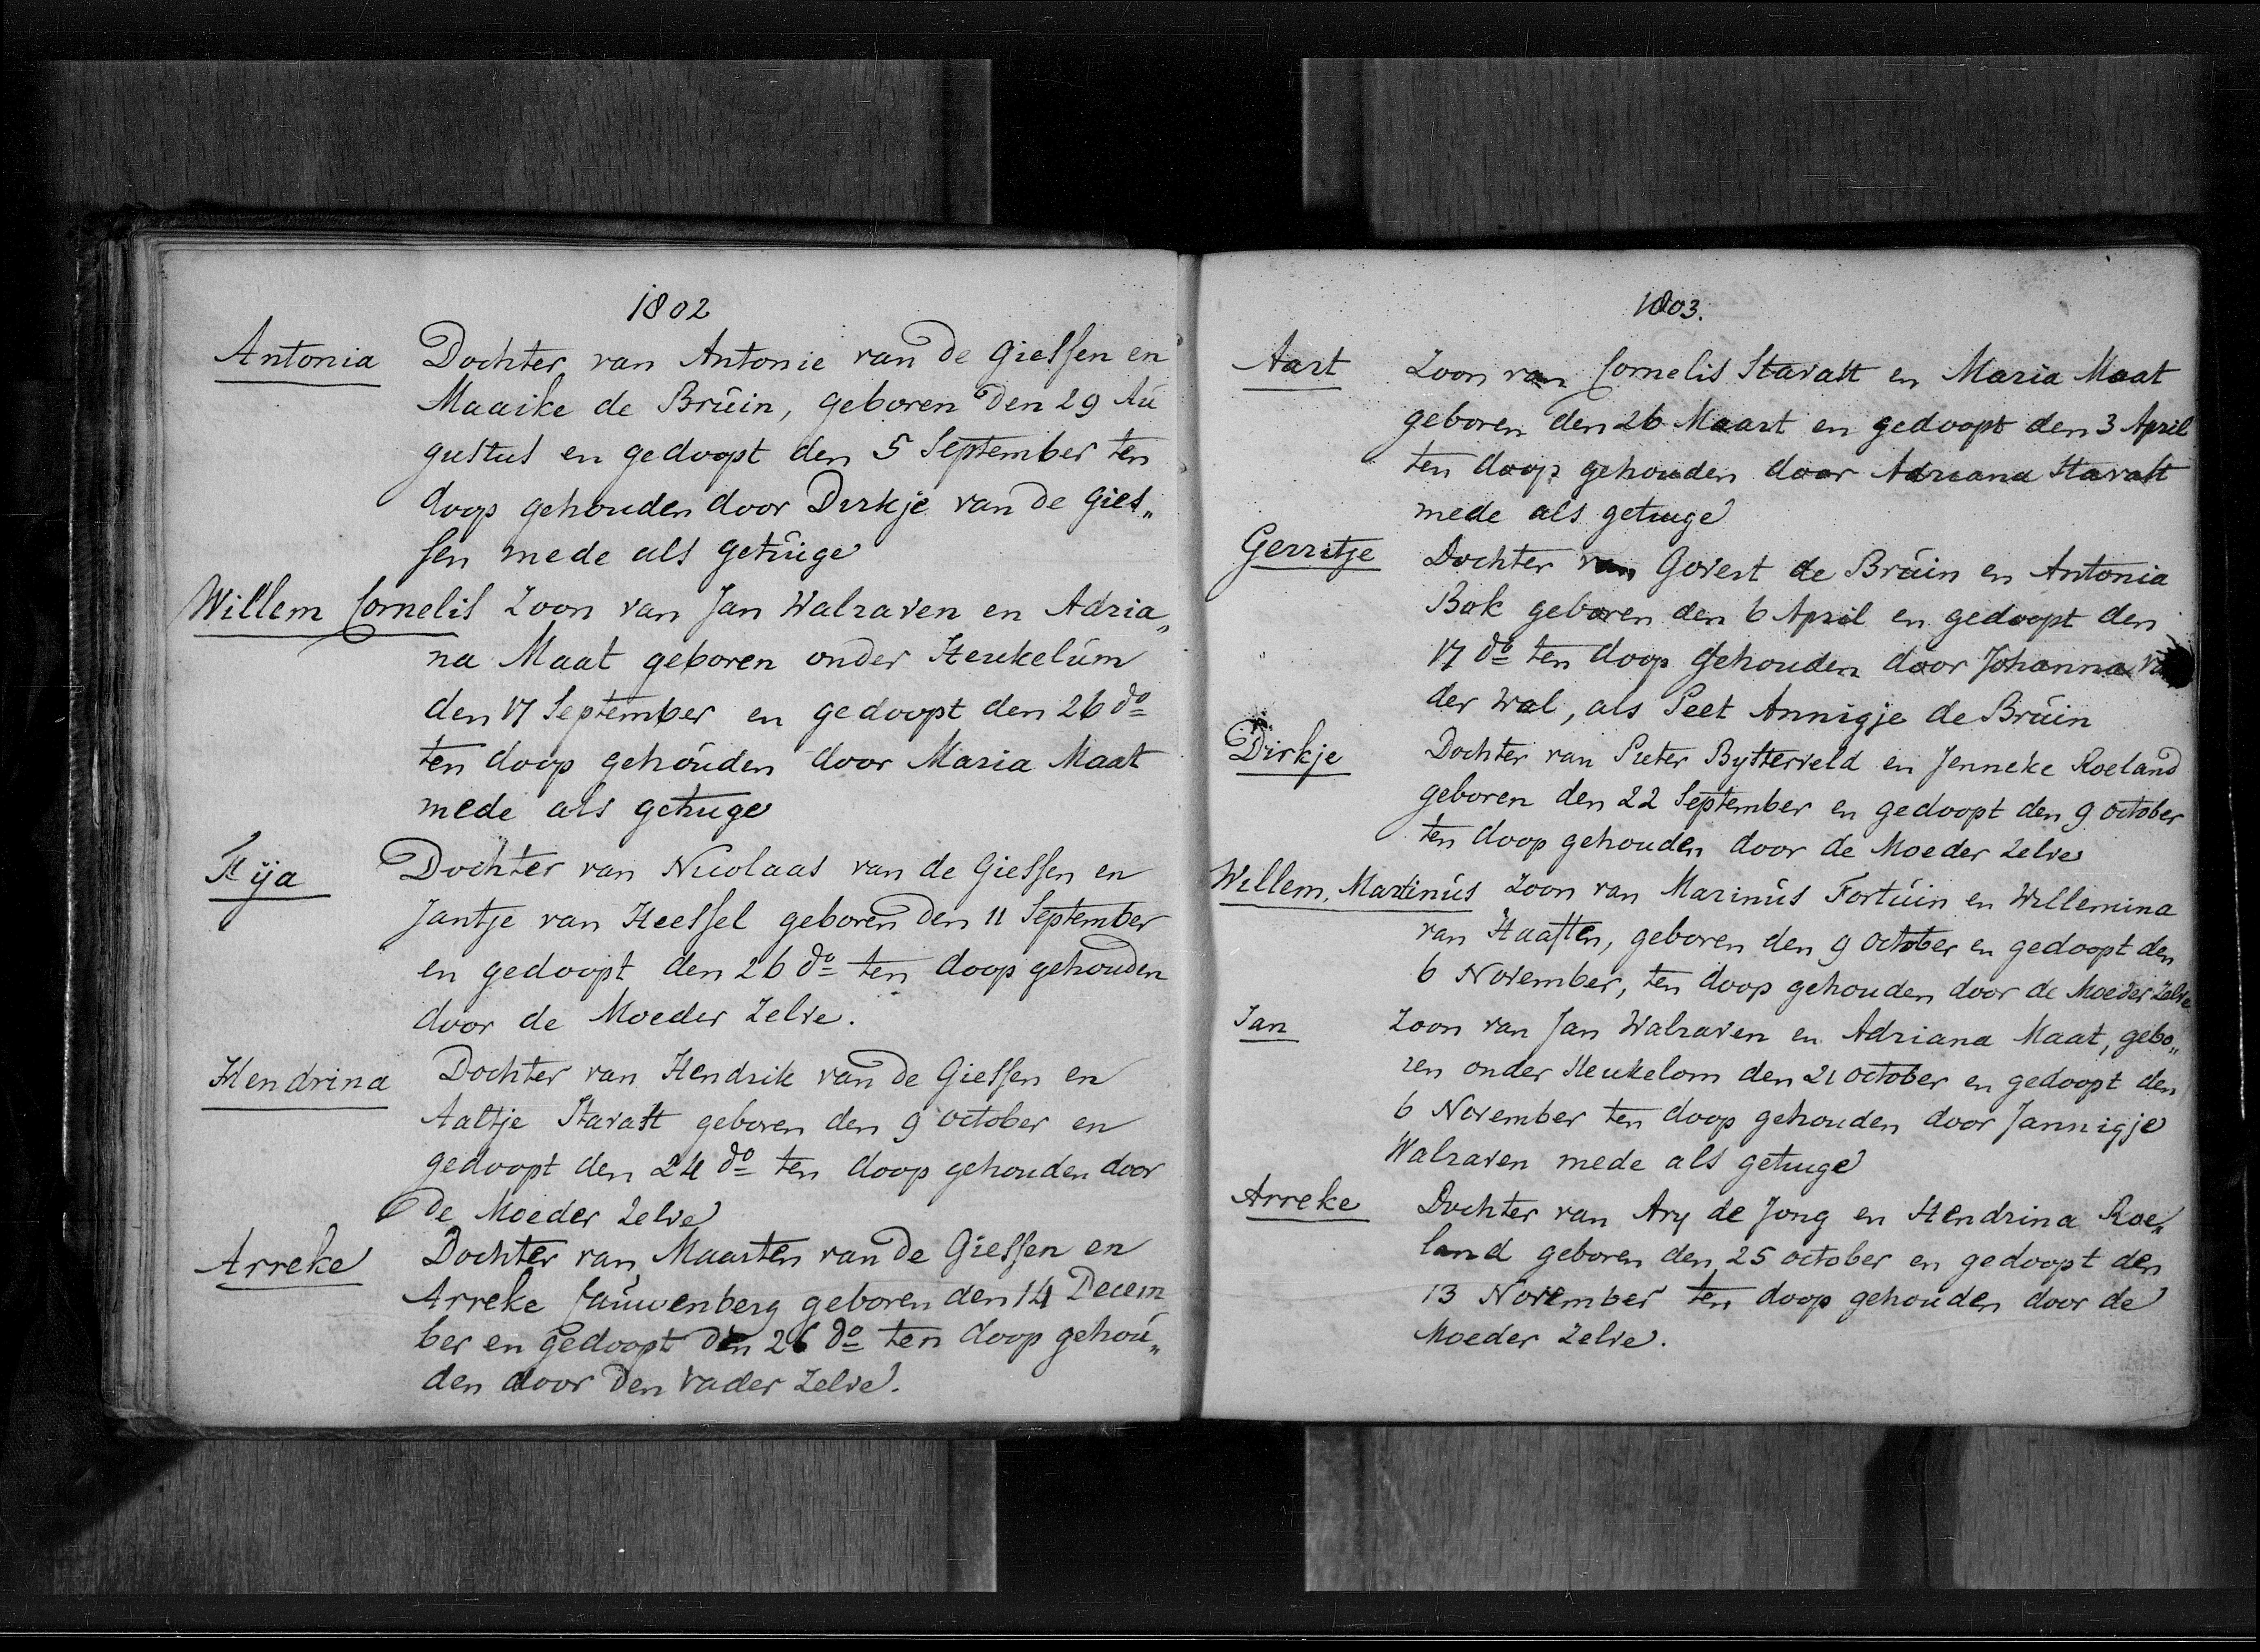 1802
Antonia Dochter van Antonie van de Giessen en
Maaike de Bruin, geboren den 29 Au
gustus en gedoopt den 5 September ten
doop gehouden door Dirkje van de Gies„
sen mede als getuige
Willem Cornelis Zoon van Jan Walraven en Adria„
na Maat geboren onder Heukelum
den 17 September en gedoopt den 26 do
ten doop gehouden door Maria Maat
mede als getuige
Fija Dochter van Nicolaas van de Giessen en
Jantje van Heessel geboren den 11 September
en gedoopt den 26 do ten doop gehouden
door de Moeder Zelve.
Hendrina Dochter van Hendrik van de Giessen en
Aaltje Stavast geboren den 9 october en
gedoopt den 24 do ten doop gehouden door
de Moeder Zelve
Arreke Dochter van Maarten van de Giessen en
Arreke Cauwenberg geboren den 14 Decem
ber en gedoopt den 26 do ten doop gehou„
den door den Vader Zelve.
1803.
Aart Zoon van Cornelis Stavast en Maria Maat
geboren den 26 Maart en gedoopt den 3 April
ten doop gehouden door Adriana Stavast
mede als getuige
Gerritje Dochter van Govert de Bruin en Antonia
Bok geboren den 6 April en gedoopt den
17 do ten doop gehouden door Johanna
der Wal, als Peet Annigje de Bruin
Dirkje Dochter van Pieter Bysterveld en Jenneke Roeland
geboren den 22 September en gedoopt den 9 october
ten doop gehouden door de Moeder Zelve
Willem, Martinus Zoon van Marinus Fortuin en Willemina
van Haaften, geboren den 9 october en gedoopt den
6 November, ten doop gehouden door de Moeder Zelve
Jan Zoon van Jan Walraven en Adriana Maat, gebo„
ren onder Heukelom den 21 october en gedoopt den
6 November ten doop gehouden door Jannigje
Walraven mede als getuige
Arreke Dochter van Ary de Jong en Hendrina Roe„
land geboren den 25 october en gedoopt den
13 November ten doop gehouden door de
Moeder Zelve.